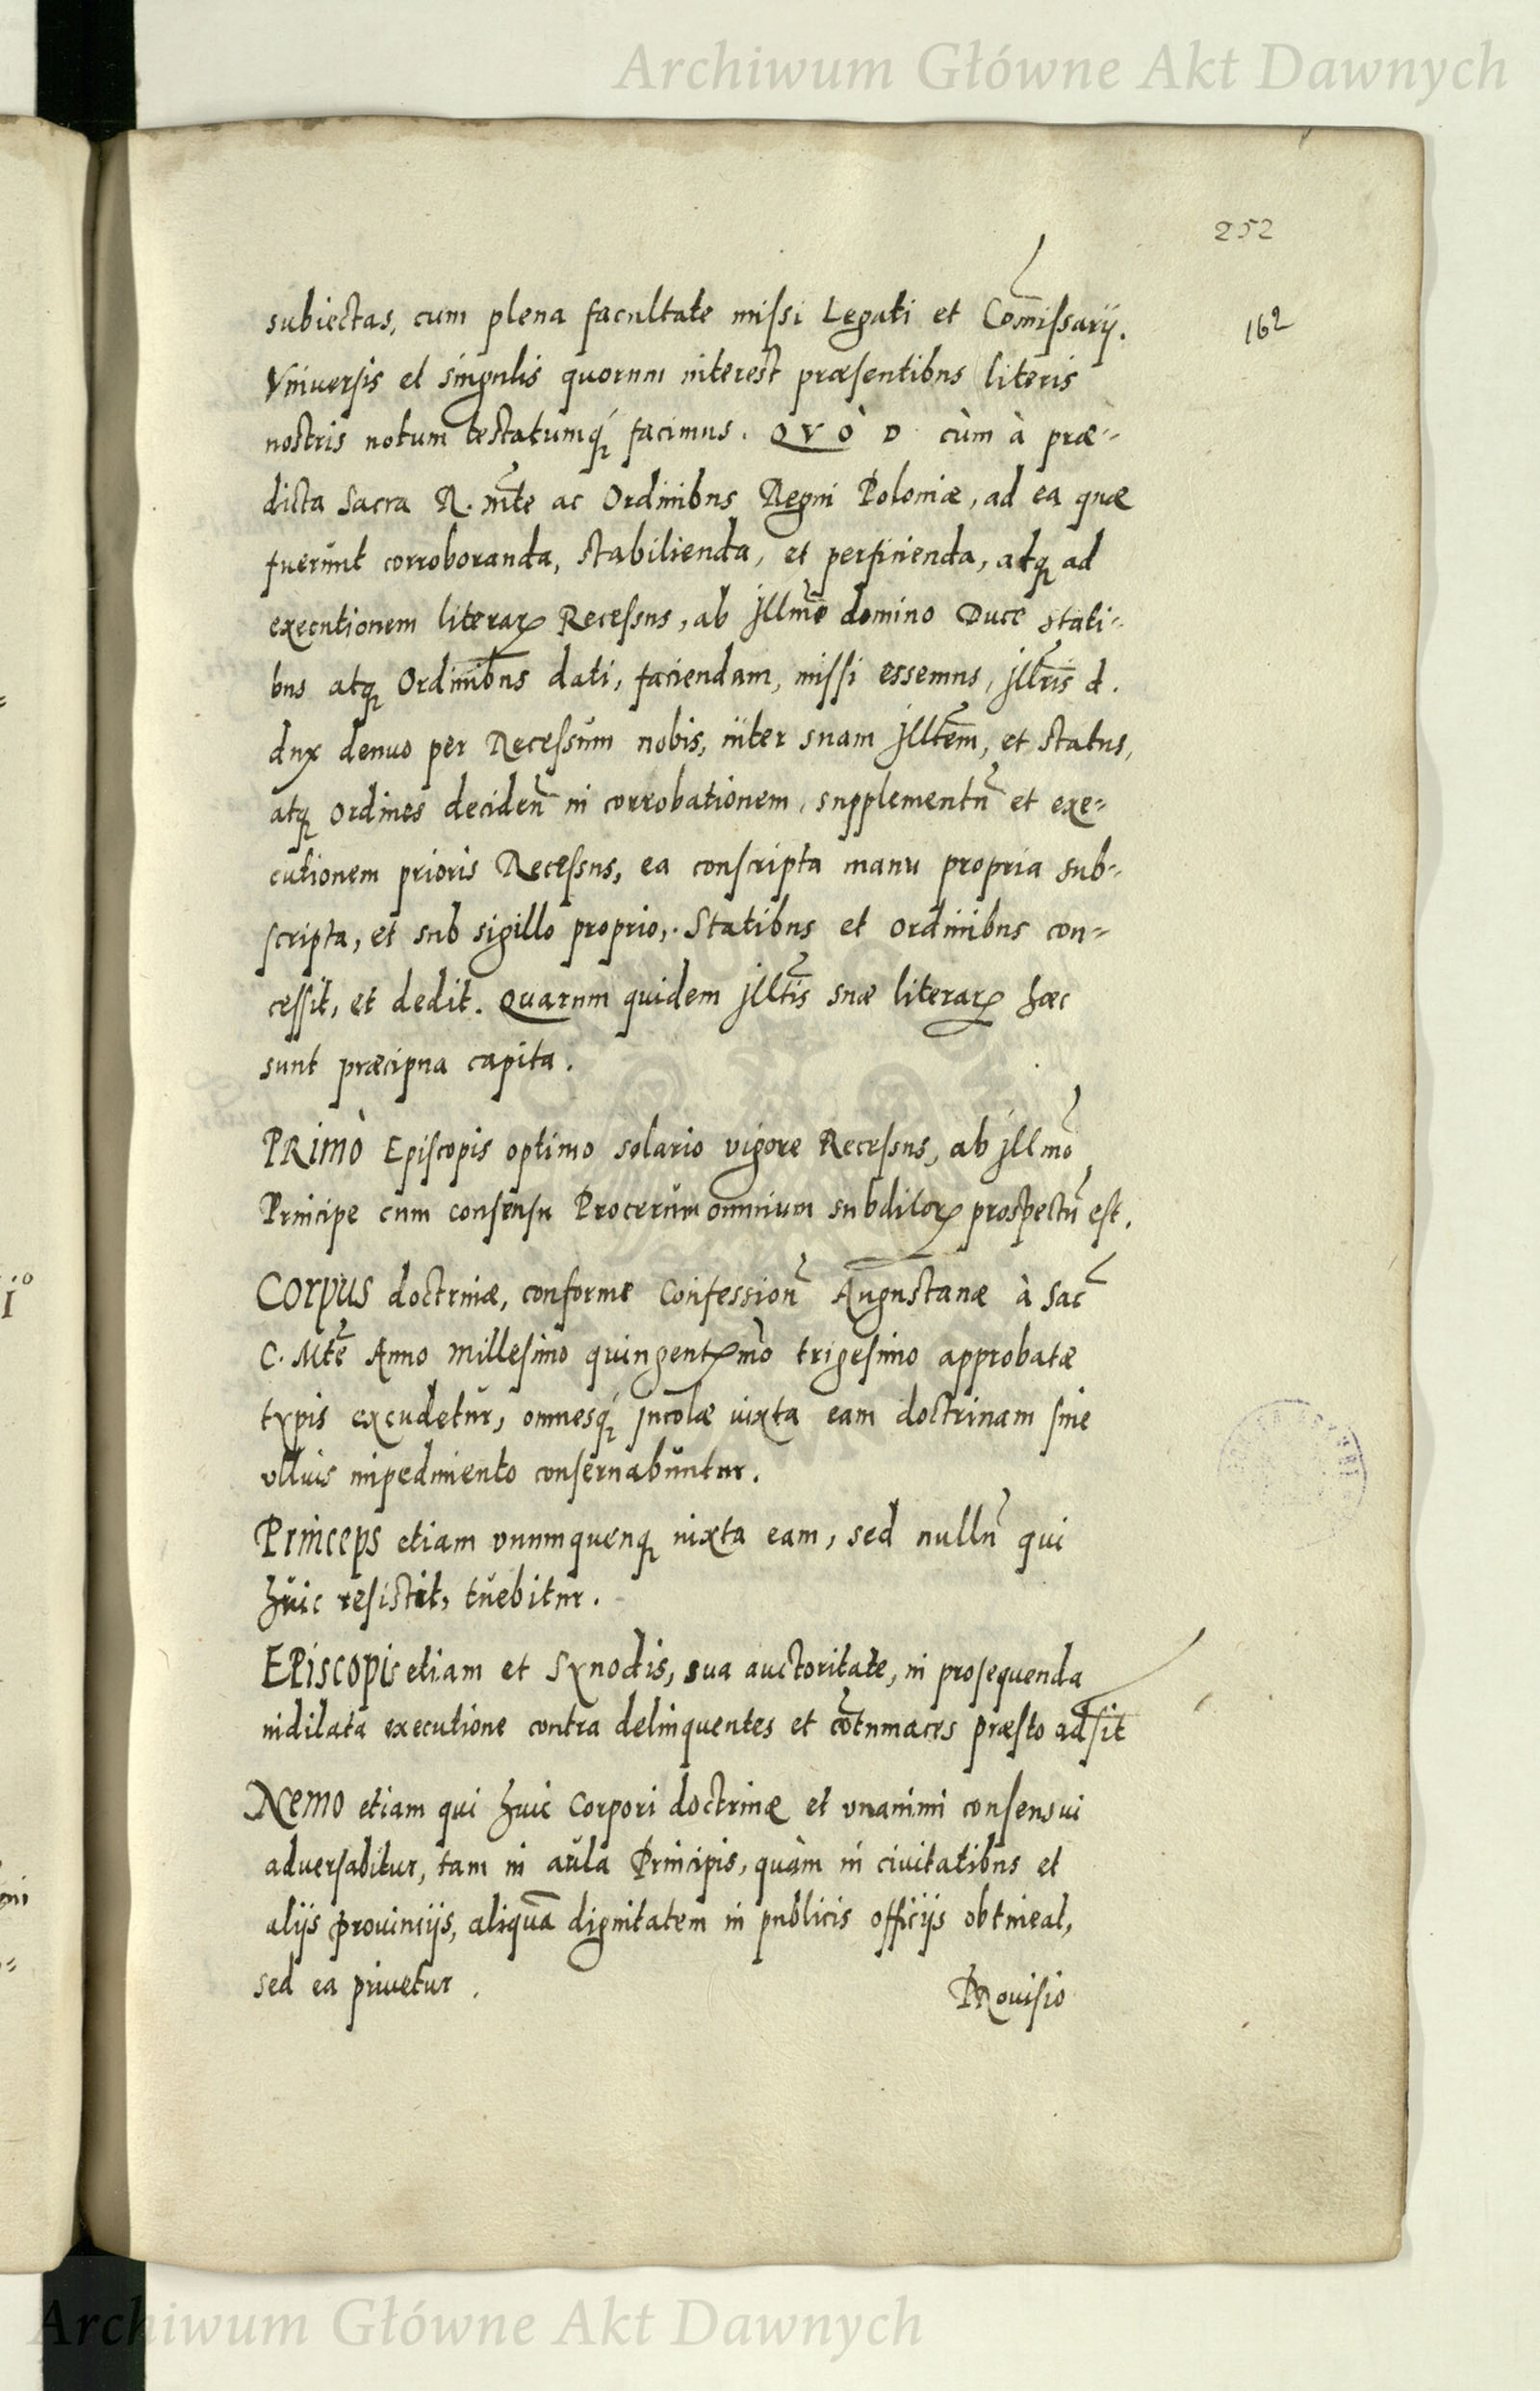 Archiwum Główne Akt Dawnych
252
162
subiectas, cum plena facultate missi Legati et Com̃issarij.
Vniuersis et singulis quorum interest præsentibus literis
nostris notum testatumq́ facimus. QVÒD cùm à præ-
dicta Sacra R. Mt̃e ac Ordinibus Regni Poloniæ, ad ea quæ
fuerunt corroboranda, stabilienda, et perficienda, atq ad
executionem literarꝝ Recessus, ab Jllm̃o domino Duce stati-
bus atq Ordinibus dati, faciendam, missi essemus, Jllr̃is d.
dux denuo per Recessum nobis, inter suam Jllt̃em, et status,
atq Ordines deciden̄ in corrobationem, supplementũ et exe-
cutionem prioris Recessus, ea conscripta manu propria sub-
scripta, et sub sigillo proprio, Statibus et Ordinibus con-
cessit, et dedit. Quarum quidem Jllt̃is suæ literarꝝ hæc
sunt præcipua capita.
PRIMÒ Episcopis optimo solario vigore Recessus, ab Jllmõ
Principe cum consensu Procerum omnium subditorꝝ prospectũ est.
Corpus doctrinæ, conforme Confession̄ Augustanæ à Sac̃
C. Mt̃e Anno Millesimo quingentꝝmo trigesimo approbatæ
typis excudetur, omnesq́ Jncolæ iuxta eam doctrinam sine
ulluis impedimento conseruabuntur.
Princeps etiam vnumquenq iuxta eam, sed nullũ qui
huic resistit, tuebitur.
EPISCOPIS etiam et Synodis, sua auctoritate, in prosequenda
indilata executione contra delinquentes et cõtumaces præsto adsit
NEMO etiam qui huic Corpori doctrinæ et vnanimi consensui
aduersabitur, tam in aula Principis, quàm in ciuitatibus et
alijs prouincijs, aliquã dignitatem in publicis officijs obtineat,
sed ea priuetur.
PRouisio
Archiwum Główne Akt Dawnych